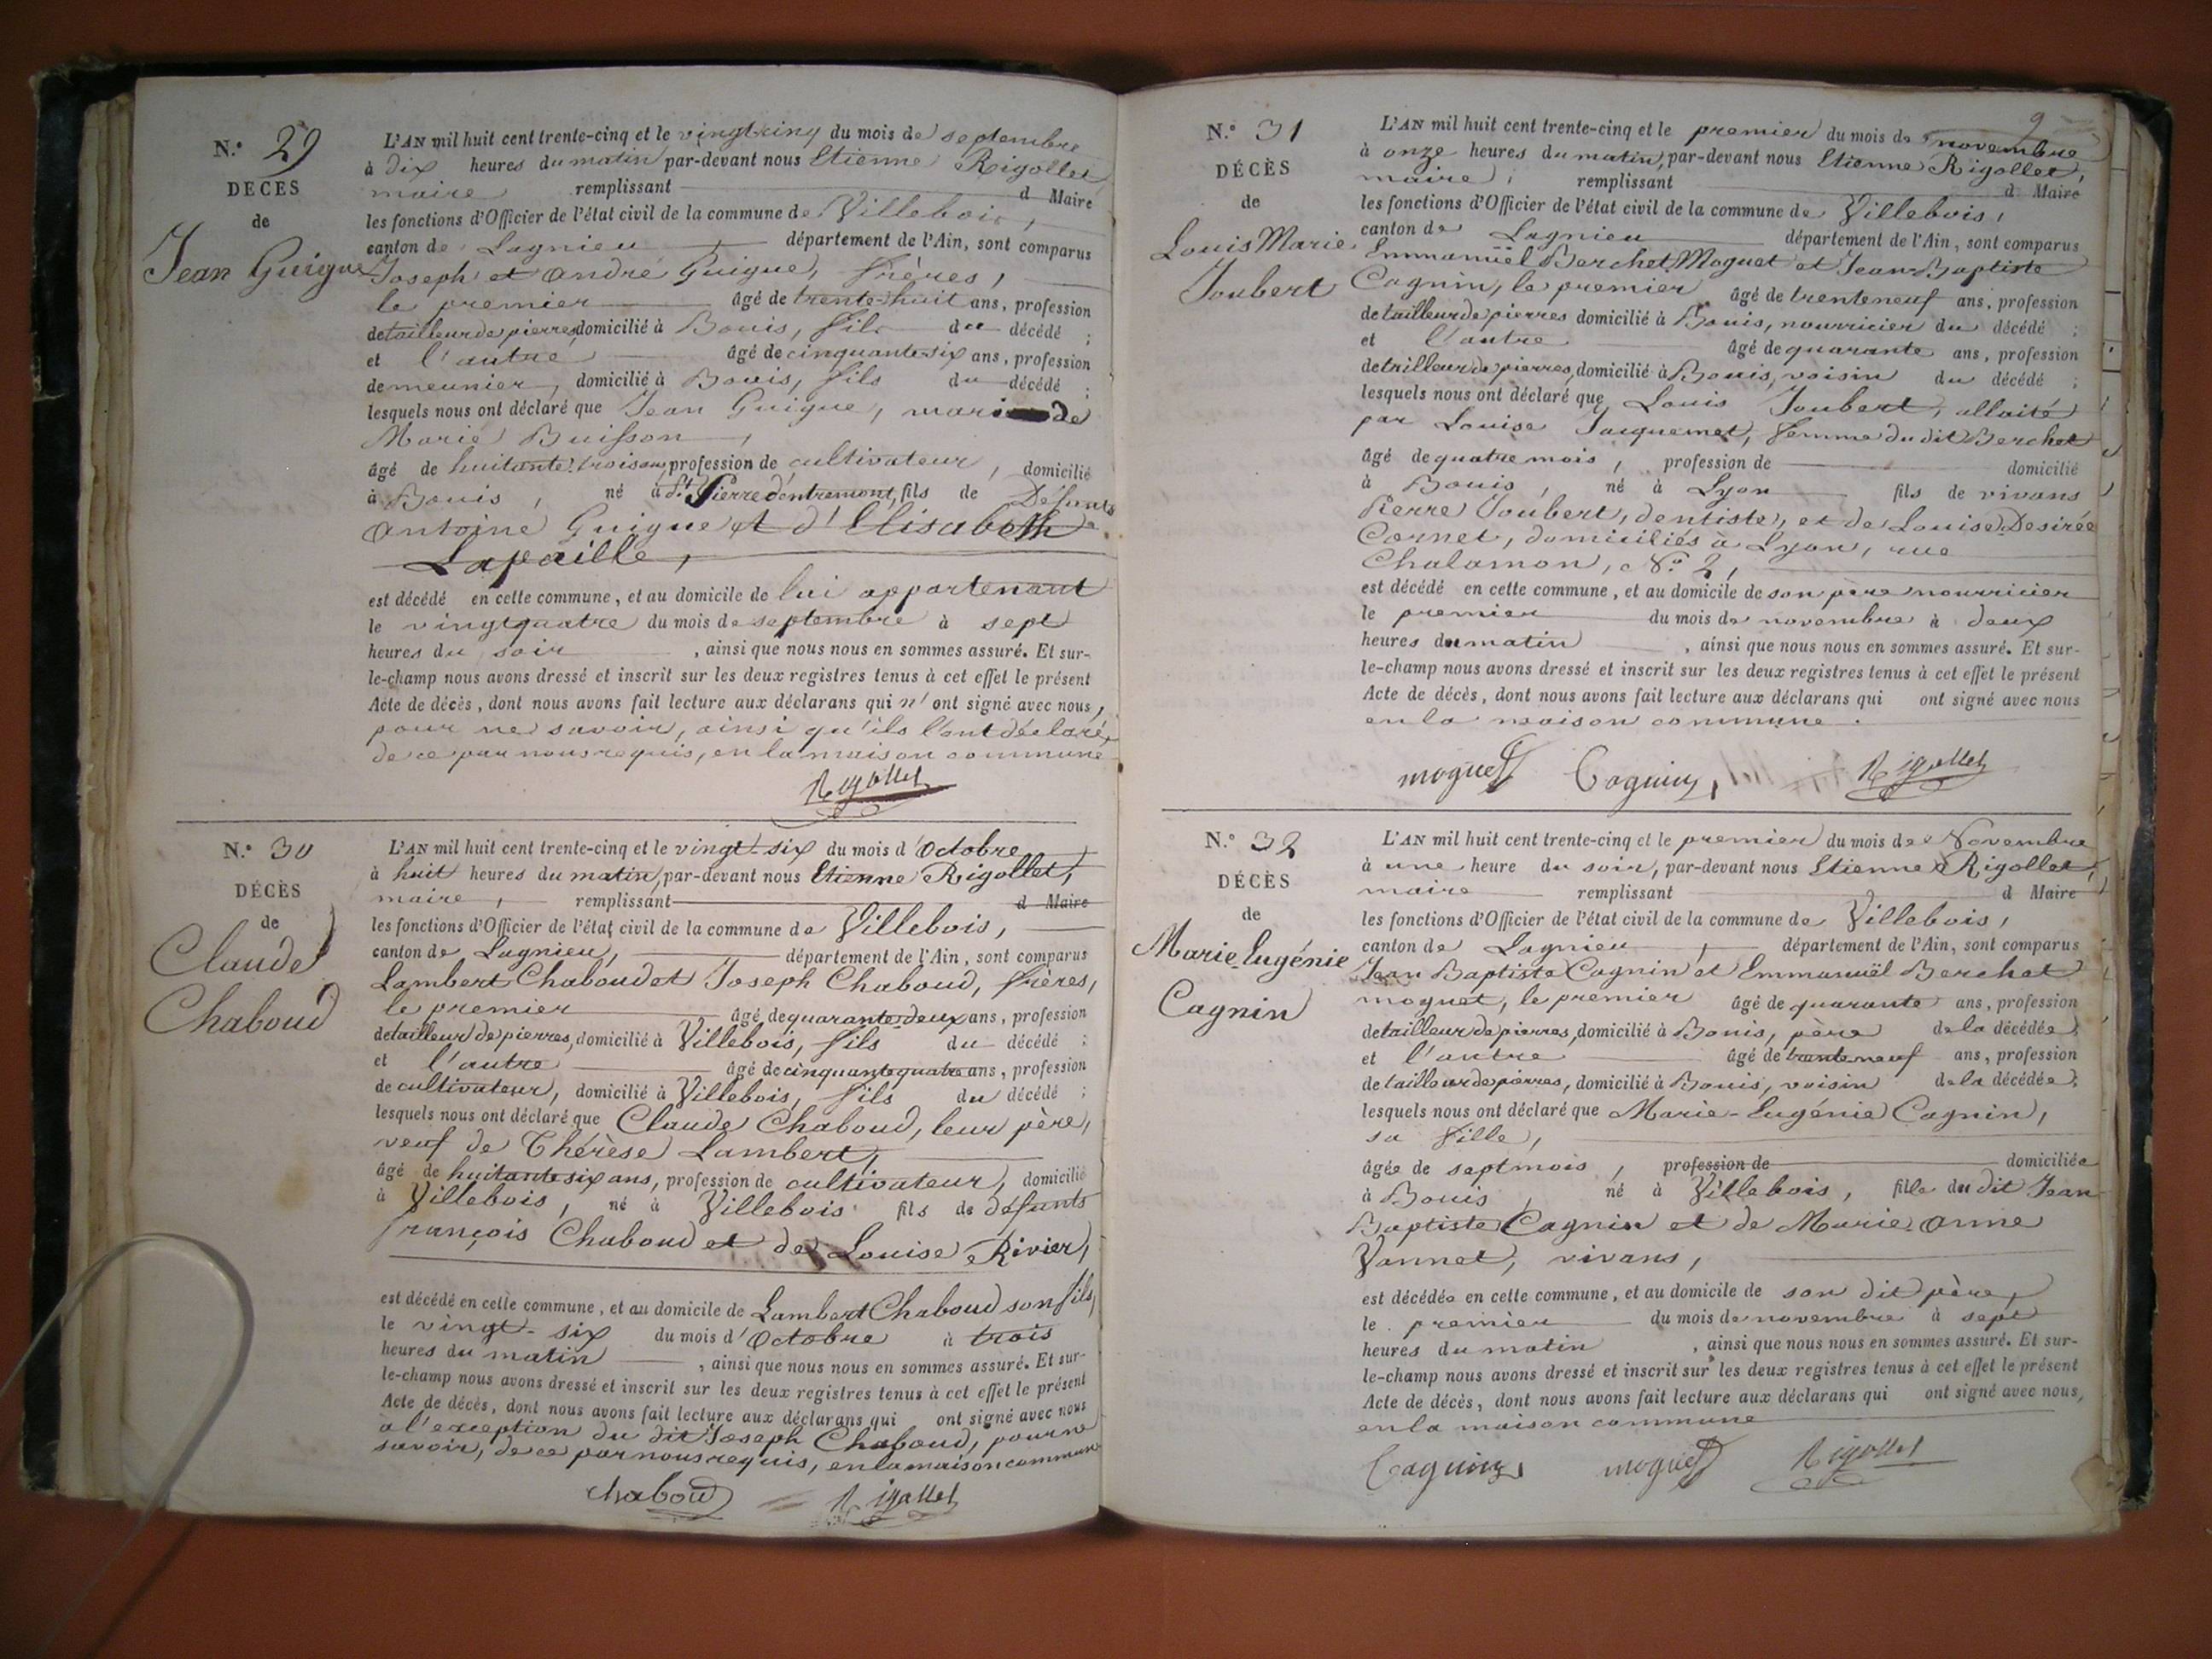 N.º 29
DÉCÈS
de
Jean Guigue
L'AN mil huit cent trente-cinq et le vingt-cinq du mois de septembre
à dix heures du matin par-devant nous Etienne Rigollet,
maire remplissant d Maire
les fonctions d'Officier de l'état civil de la commune de Villebois,
canton de Lagnieu, département de l'Ain, sont comparus
Joseph et andré Guigue, frères,
le premier âgé de trente-huit ans, profession
de tailleur de pierres, domicilié à Bouis, fils du décédé ;
et l'autre âgé de cinquante-six ans, profession
de meunier, domicilié à Bouis, fils du décédé ;
lesquels nous ont déclaré que Jean Guigue, mari de
Marie Buisson,
âgé de huitante-trois ans, profession de cultivateur, domicilié
à Bouis, né à St Pierre d'entremont, fils de Défunts
antoine Guigue et d'Elisabeth
Lapaille,
est décédé en cette commune, et au domicile de lui appartenant
le vingtquatre du mois de septembre à sept
heures du soir, ainsi que nous nous en sommes assuré. Et sur-
le-champ nous avons dressé et inscrit sur les deux registres tenus à cet effet le présent
Acte de décès, dont nous avons fait lecture aux déclarans qui n'ont signé avec nous,
pour ne savoir, ainsi qu'ils l'ont déclaré,
de ce par nous requis, en la maison commune
Rigollet
N.º 30
DÉCÈS
de
Claude
Chaboud
L'AN mil huit cent trente-cinq et le vingt-six du mois d'Octobre
à huit heures du matin, par-devant nous Etienne Rigollet,
maire, remplissant d Maire
les fonctions d'Officier de l'état civil de la commune de Villebois,
canton de Lagnieu, département de l'Ain, sont comparus
Lambert Chaboud et Joseph Chaboud, frères,
le premier âgé de quarante-deux ans, profession
de tailleur de pierres, domicilié à Villebois, fils du décédé ;
et l'autre âgé de cinquante quatre ans, profession
de cultivateur, domicilié à Villebois, fils du décédé ;
lesquels nous ont déclaré que Claude Chaboud, leur père,
veuf de Thérèse Lambert,
âgé de huitante six ans, profession de cultivateur, domicilié
à Villebois, né à Villebois fils de défunts
françois Chaboud et de Louise Rivier,
est décédé en cette commune, et au domicile de Lambert Chaboud son fils,
le vingt-six du mois d'Octobre à trois
heures du matin, ainsi que nous nous en sommes assuré. Et sur-
le-champ nous avons dressé et inscrit sur les deux registres tenus à cet effet le présent
Acte de décès, dont nous avons fait lecture aux déclarans qui ont signé avec nous
à l'exception du dit Joseph Chaboud, pour ne
savoir, de ce par nous requis, en la maison commune
chaboud Rigollet
9
N.º 31
DÉCÈS
de
Louis Marie
Joubert
L'AN mil huit cent trente-cinq et le premier du mois de novembre
à onze heures du matin, par-devant nous Etienne Rigollet,
maire, remplissant d Maire
les fonctions d'Officier de l'état civil de la commune de Villebois,
canton de Lagnieu département de l'Ain, sont comparus
Emmanuël Berchet Moguet et Jean-Baptiste
Cagnin, le premier âgé de trente neuf ans, profession
de tailleur de pierres domicilié à Bouis, nourricier du décédé ;
et l'autre âgé de quarante ans, profession
de tailleur de pierres, domicilié à Bouis, voisin du décédé ;
lesquels nous ont déclaré que Louis Joubert, allaité
par Louise Jacquemet, femme du dit Berchet
âgé de quatre mois, profession de domicilié
à Bouis, né à Lyon fils de vivans
Pierre Joubert, dentiste, et de Louise Desirée
Cornet, domiciliés à Lyon, rue
Chalamon, N.º 2,
est décédé en cette commune, et au domicile de son père nourricier
le premier du mois de novembre à deux
heures du matin, ainsi que nous nous en sommes assuré. Et sur-
le-champ nous avons dressé et inscrit sur les deux registres tenus à cet effet le présent
Acte de décès, dont nous avons fait lecture aux déclarans qui ont signé avec nous
en la maison commune.
moguet Cagnin, Rigollet
N.º 32
DÉCÈS
de
Marie-Eugénie
Cagnin
L'AN mil huit cent trente-cinq et le premier du mois de Novembre
à une heure du soir, par-devant nous Etienne Rigollet,
maire remplissant d Maire
les fonctions d'Officier de l'état civil de la commune de Villebois,
canton de Lagnieu, département de l'Ain, sont comparus
Jean Baptiste Cagnin et Emmanuël Berchet
moguet, le premier âgé de quarante ans, profession
de tailleur de pierres, domicilié à Bouis, père de la décédée ;
et l'autre âgé de trente neuf ans, profession
de tailleur de pierres, domicilié à Bouis, voisin de la décédée ;
lesquels nous ont déclaré que Marie-Eugénie Cagnin,
sa fille,
âgée de sept mois, profession de domiciliée
à Bouis, né à Villebois, fille du dit Jean
Baptiste Cagnin et de Marie-anne
Vannet, vivans,
est décédée en cette commune, et au domicile de son dit père,
le premier du mois de novembre à sept
heures du matin, ainsi que nous nous en sommes assuré. Et sur-
le-champ nous avons dressé et inscrit sur les deux registres tenus à cet effet le présent
Acte de décès, dont nous avons fait lecture aux déclarans qui ont signé avec nous,
en la maison commune
Cagnin moguet Rigollet